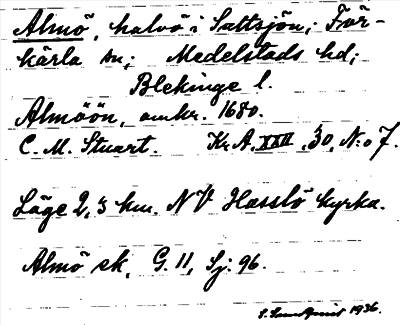 Almö, halvö i Saltsjön; För-
kärla sn; Medelstads hd;
Blekinge l.
Almöön, omkr. 1680.
C. M. Stuart. Kr. A. XXII, 30, N:o 7.
Läge 2,3 km. NV Hasslö kyrka.
Almö ek. G. 11, Sj: 96.
S. Sundqvist 1936.